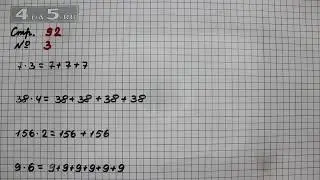 4 НА 5.RU
Стр. 92
№ 3
7 · 3 = 7+7+7
38 · 4 = 38 + 38 + 38 + 38
156 · 2 = 156 + 156
9 · 6 = 9+9+9+9+9+9